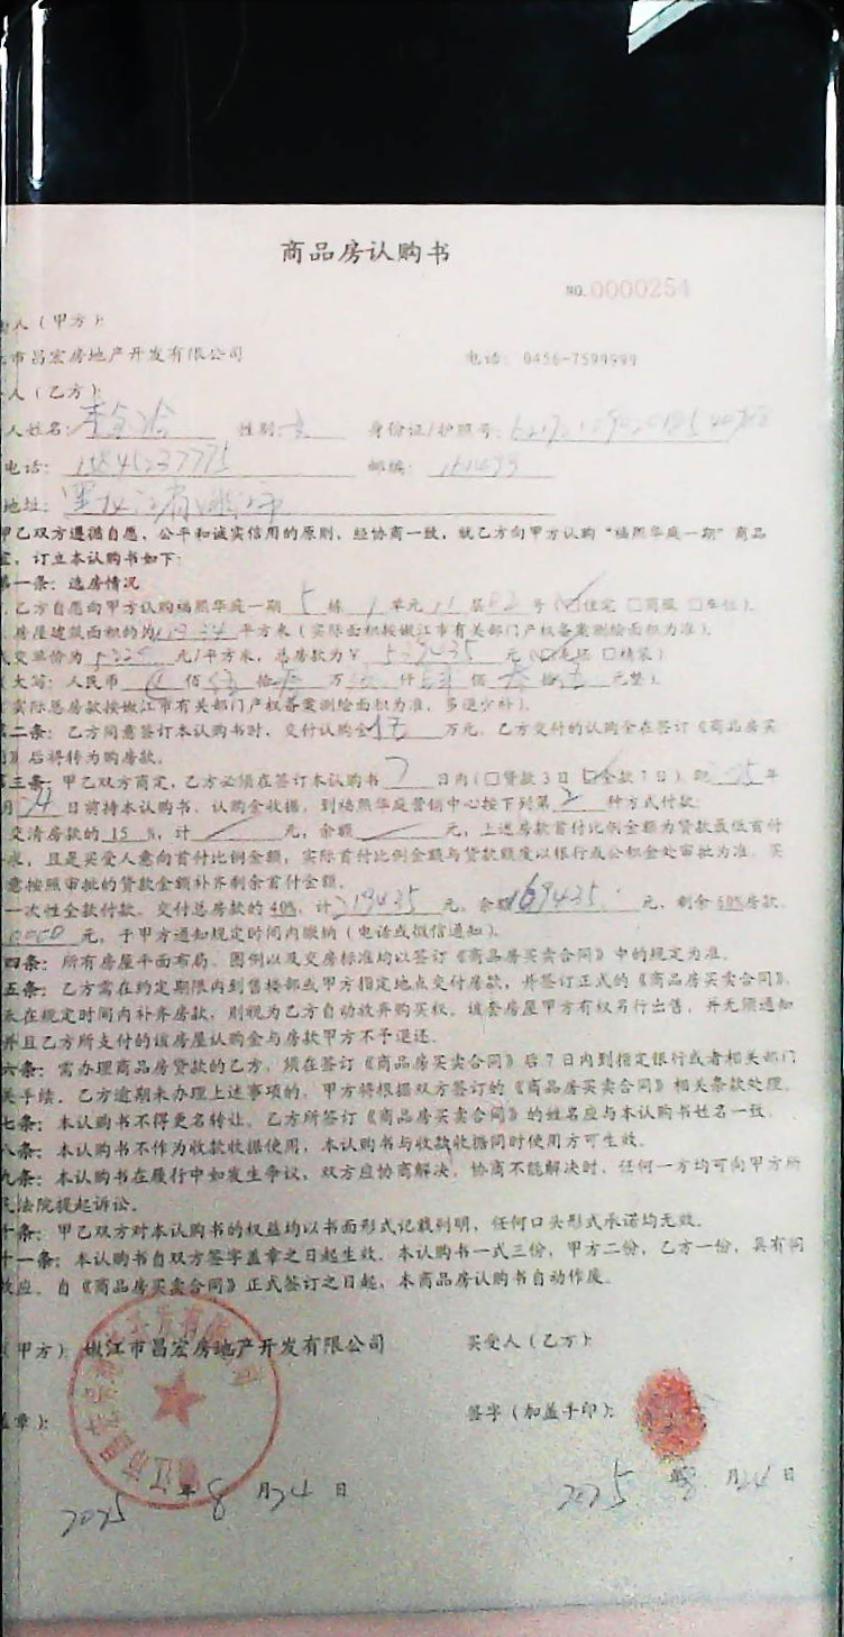 商品房认购书
NO.0000254
人（甲方）：
市昌宏房地产开发有限公司 电话：0456-7599999
人（乙方）：
人姓名： 性别： 身份证/护照号：
电话：15845237775 邮编：
地址：黑龙江省嫩江市
甲乙双方遵循自愿、公平和诚实信用的原则，经协商一致，就乙方向甲方认购“福熙华庭一期”商品
宜，订立本认购书如下：
第一条：选房情况
乙方自愿向甲方认购福熙华庭一期 5 栋 1 单元 11 层 号（☑住宅 □商服 □车位）。
房屋建筑面积约为 平方米（实际面积按嫩江市有关部门产权备案测绘面积为准）。
交单价为 元/平方米，总房款为￥ 元（☑毛坯 □精装）
大写：人民币 佰 拾 万 仟 佰 拾 元整）。
实际总房款按嫩江市有关部门产权备案测绘面积为准，多退少补）。
第二条：乙方同意签订本认购书时，交付认购金 万元。乙方交付的认购金在签订《商品房买
》后将转为购房款。
第三条：甲乙双方商定，乙方必须在签订本认购书 7 日内（□贷款3日 ☑全款7日）即 年
月 日前持本认购书、认购金收据，到福熙华庭营销中心按下列第 2 种方式付款：
交清房款的 15 %，计 元，余额 元，上述房款首付比例金额为贷款最低首付
求，且是买受人意向首付比例金额，实际首付比例金额与贷款额度以银行或公积金处审批为准。买
意按照审批的贷款金额补齐剩余首付金额。
一次性全款付款。交付总房款的 40%，计 219435 元，余额 169435 元，剩余 60%房款
元，于甲方通知规定时间内缴纳（电话或微信通知）。
四条：所有房屋平面布局、图例以及交房标准均以签订《商品房买卖合同》中的规定为准。
五条：乙方需在约定期限内到售楼部或甲方指定地点交付房款，并签订正式的《商品房买卖合同》。
未在规定时间内补齐房款，则视为乙方自动放弃购买权。该套房屋甲方有权另行出售，并无须通知
并且乙方所支付的该房屋认购金与房款甲方不予退还。
六条：需办理商品房贷款的乙方，须在签订《商品房买卖合同》后7日内到指定银行或者相关部门
关手续。乙方逾期未办理上述事项的，甲方将根据双方签订的《商品房买卖合同》相关条款处理。
七条：本认购书不得更名转让。乙方所签订《商品房买卖合同》的姓名应与本认购书姓名一致。
八条：本认购书不作为收款收据使用，本认购书与收款收据同时使用方可生效。
九条：本认购书在履行中如发生争议，双方应协商解决。协商不能解决时，任何一方均可向甲方所
民法院提起诉讼。
十条：甲乙双方对本认购书的权益均以书面形式记载列明，任何口头形式承诺均无效。
十一条：本认购书自双方签字盖章之日起生效。本认购书一式三份，甲方二份，乙方一份，具有同
效应。自《商品房买卖合同》正式签订之日起，本商品房认购书自动作废。
（甲方）：嫩江市昌宏房地产开发有限公司 买受人（乙方）：
盖章）： 签字（加盖手印）：
2025 年 8 月 24 日 2025 年 8 月 24 日